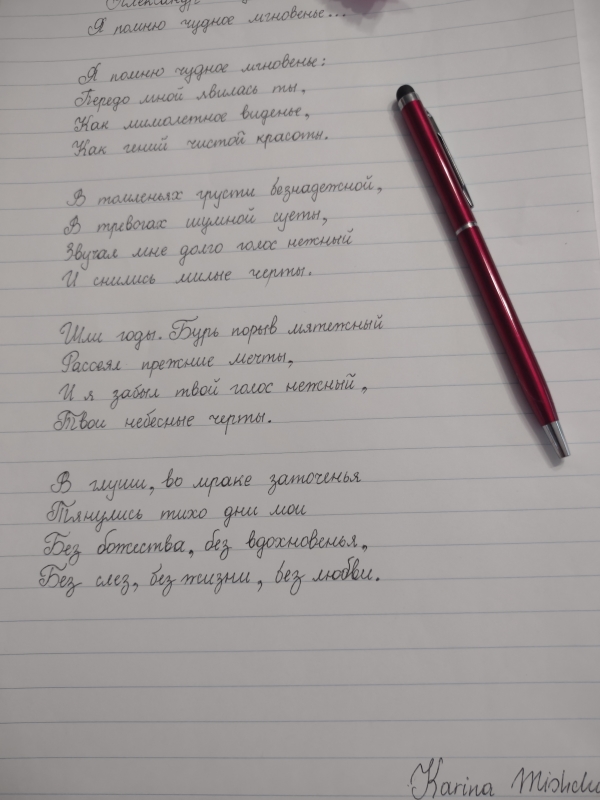 Александр
Я помню чудное мгновенье...
Я помню чудное мгновенье:
Передо мной явилась ты,
Как мимолетное виденье,
Как гений чистой красоты.
В томленьях грусти безнадежной,
В тревогах шумной суеты,
Звучал мне долго голос нежный
И снились милые черты.
Шли годы. Бурь порыв мятежный
Рассеял прежние мечты,
И я забыл твой голос нежный,
Твои небесные черты.
В глуши, во мраке заточенья
Тянулись тихо дни мои
Без божества, без вдохновенья,
Без слез, без жизни, без любви.
Karina